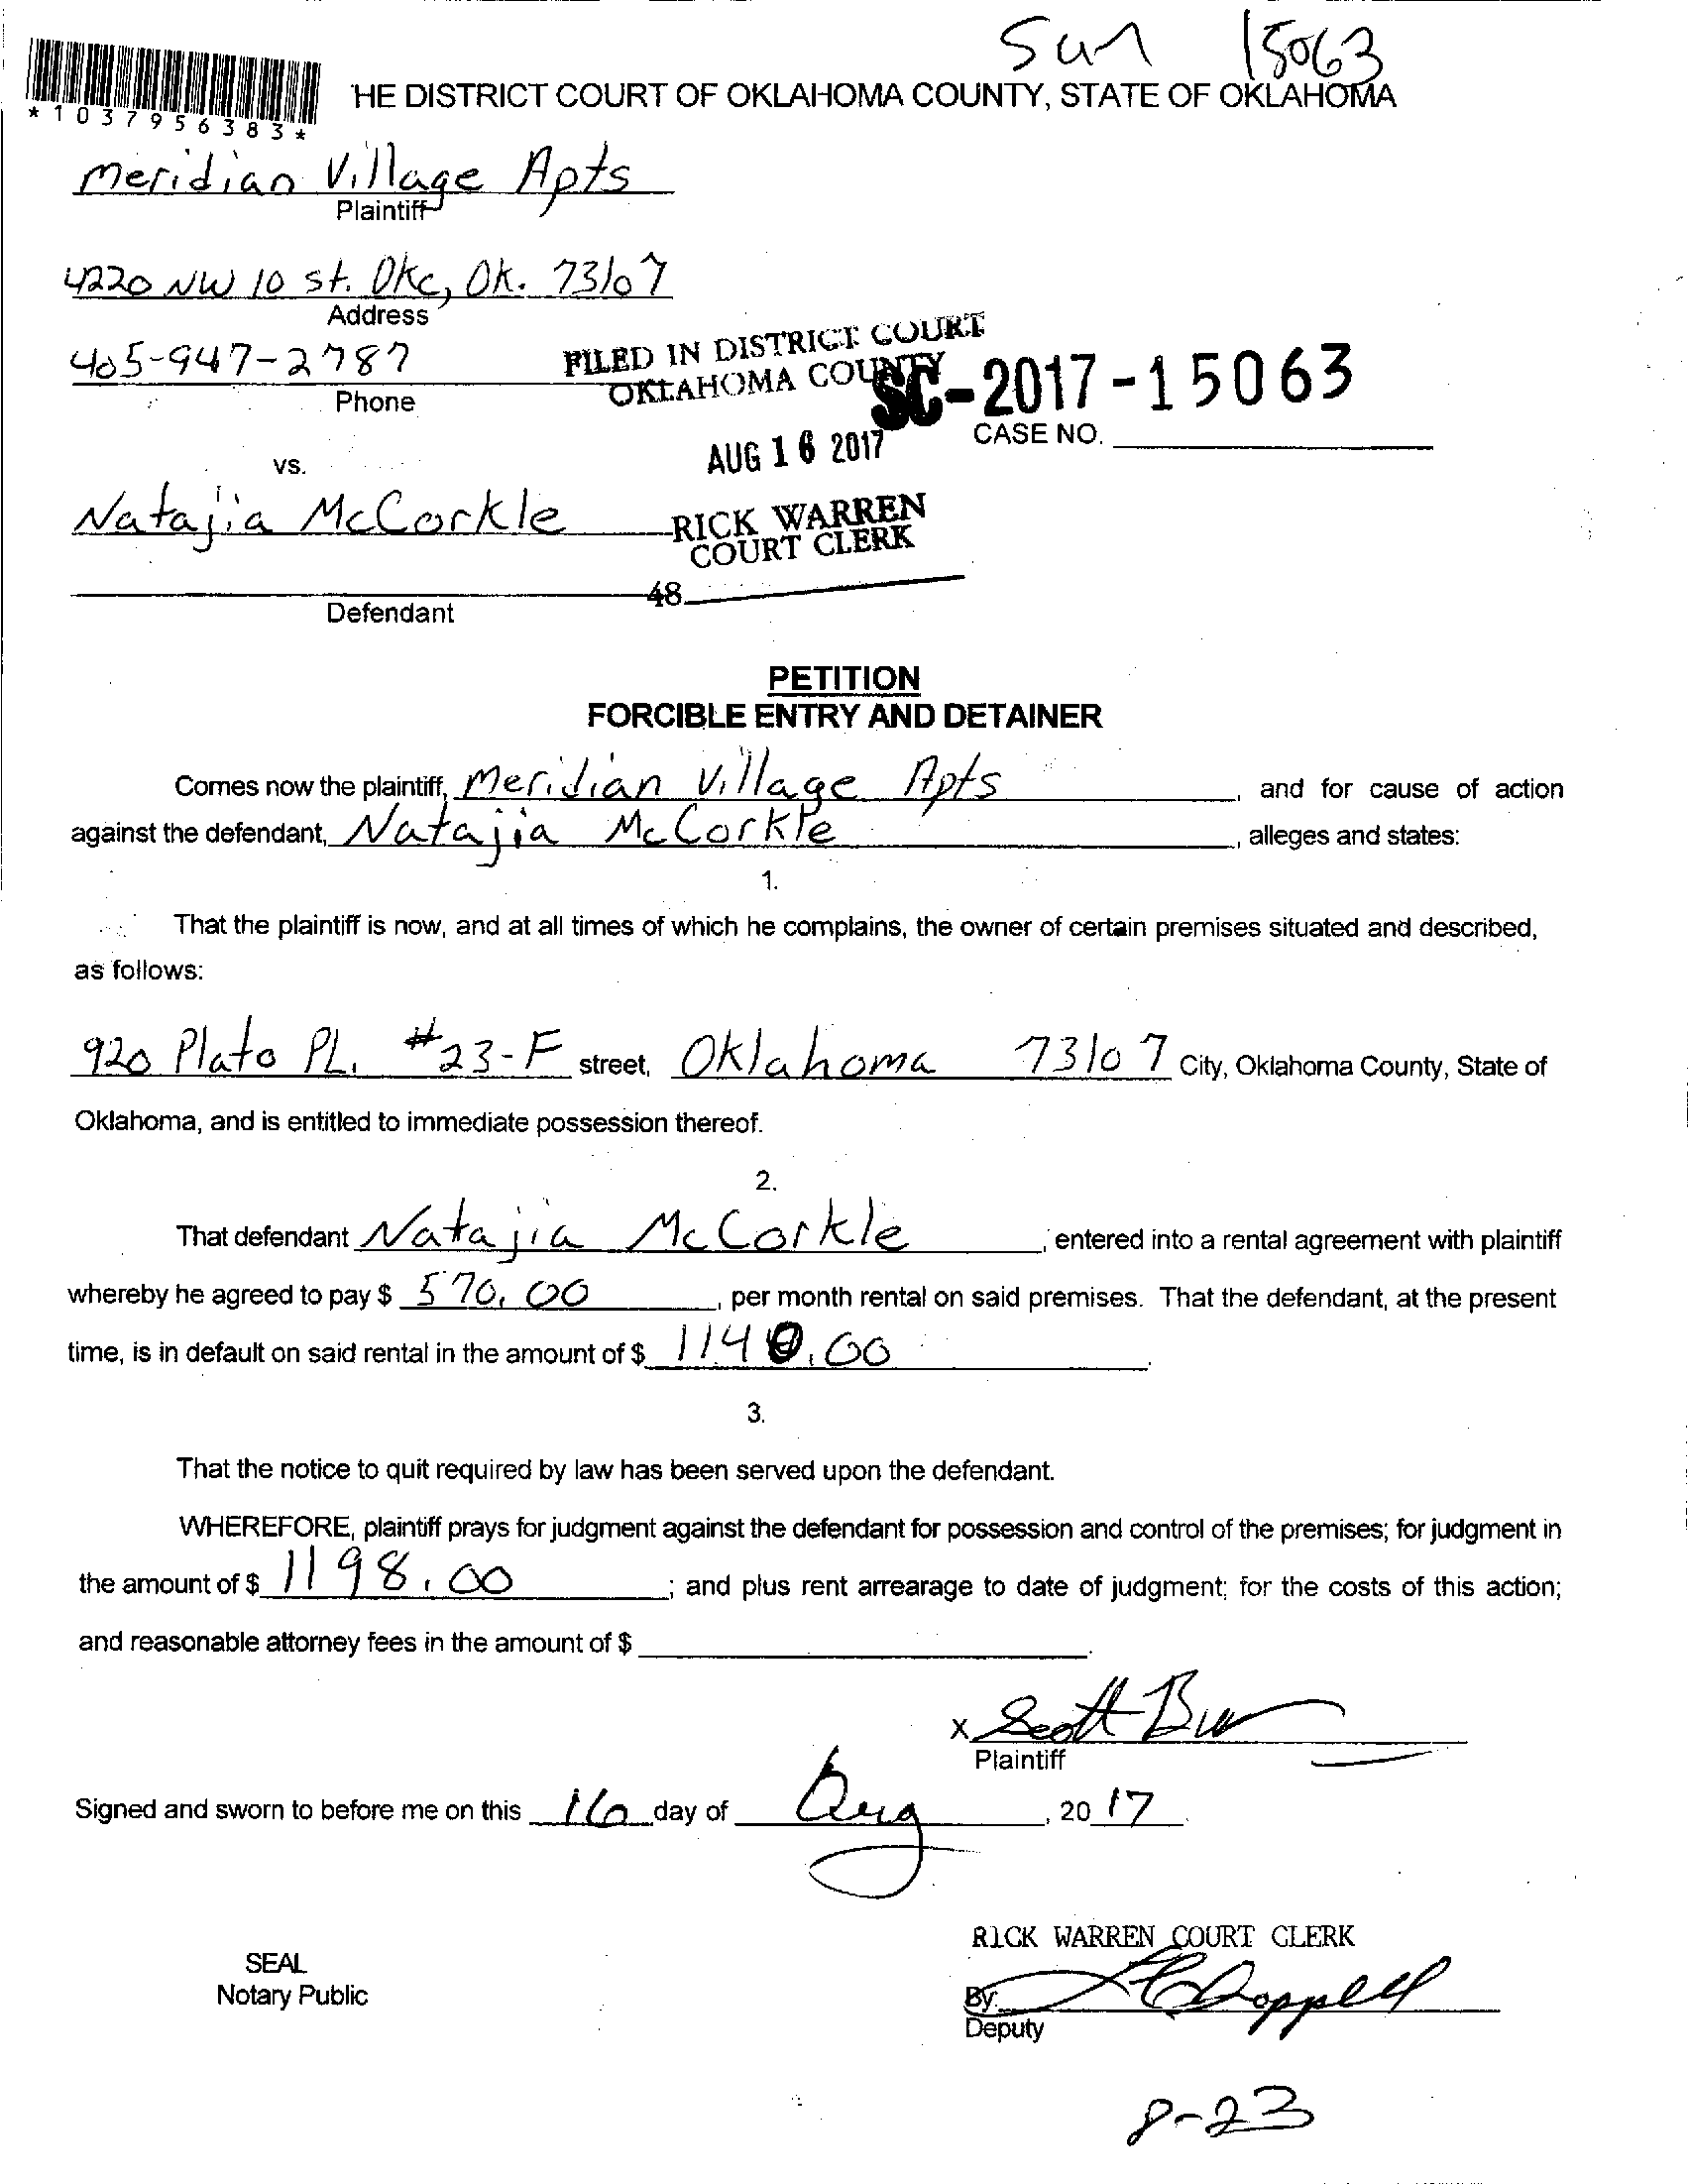 Sun 15063
*1037956383*
HE DISTRICT COURT OF OKLAHOMA COUNTY, STATE OF OKLAHOMA
Meridian Village Apts
Plaintiff
4220 NW 10 st. Okc, Ok. 73107
Address
405-947-2787
Phone
FILED IN DISTRICT COURT
OKLAHOMA COUNTY
SC-2017-15063
CASE NO.
AUG 16 2017
vs.
Natajia McCorkle
RICK WARREN
COURT CLERK
48
Defendant
PETITION
FORCIBLE ENTRY AND DETAINER
Comes now the plaintiff, Meridian Village Apts, and for cause of action
against the defendant, Natajia McCorkle, alleges and states:
1.
That the plaintiff is now, and at all times of which he complains, the owner of certain premises situated and described,
as follows:
920 Plato PL. #23-F street, Oklahoma 73107 City, Oklahoma County, State of
Oklahoma, and is entitled to immediate possession thereof.
2.
That defendant Natajia McCorkle, entered into a rental agreement with plaintiff
whereby he agreed to pay $ 570.00, per month rental on said premises. That the defendant, at the present
time, is in default on said rental in the amount of $ 1140.00.
3.
That the notice to quit required by law has been served upon the defendant.
WHEREFORE, plaintiff prays for judgment against the defendant for possession and control of the premises; for judgment in
the amount of $ 1198.00; and plus rent arrearage to date of judgment; for the costs of this action;
and reasonable attorney fees in the amount of $.
x Scott
Plaintiff
Signed and sworn to before me on this 16 day of Aug, 2017.
RICK WARREN COURT CLERK
SEAL
Notary Public
By:
Deputy
8-23